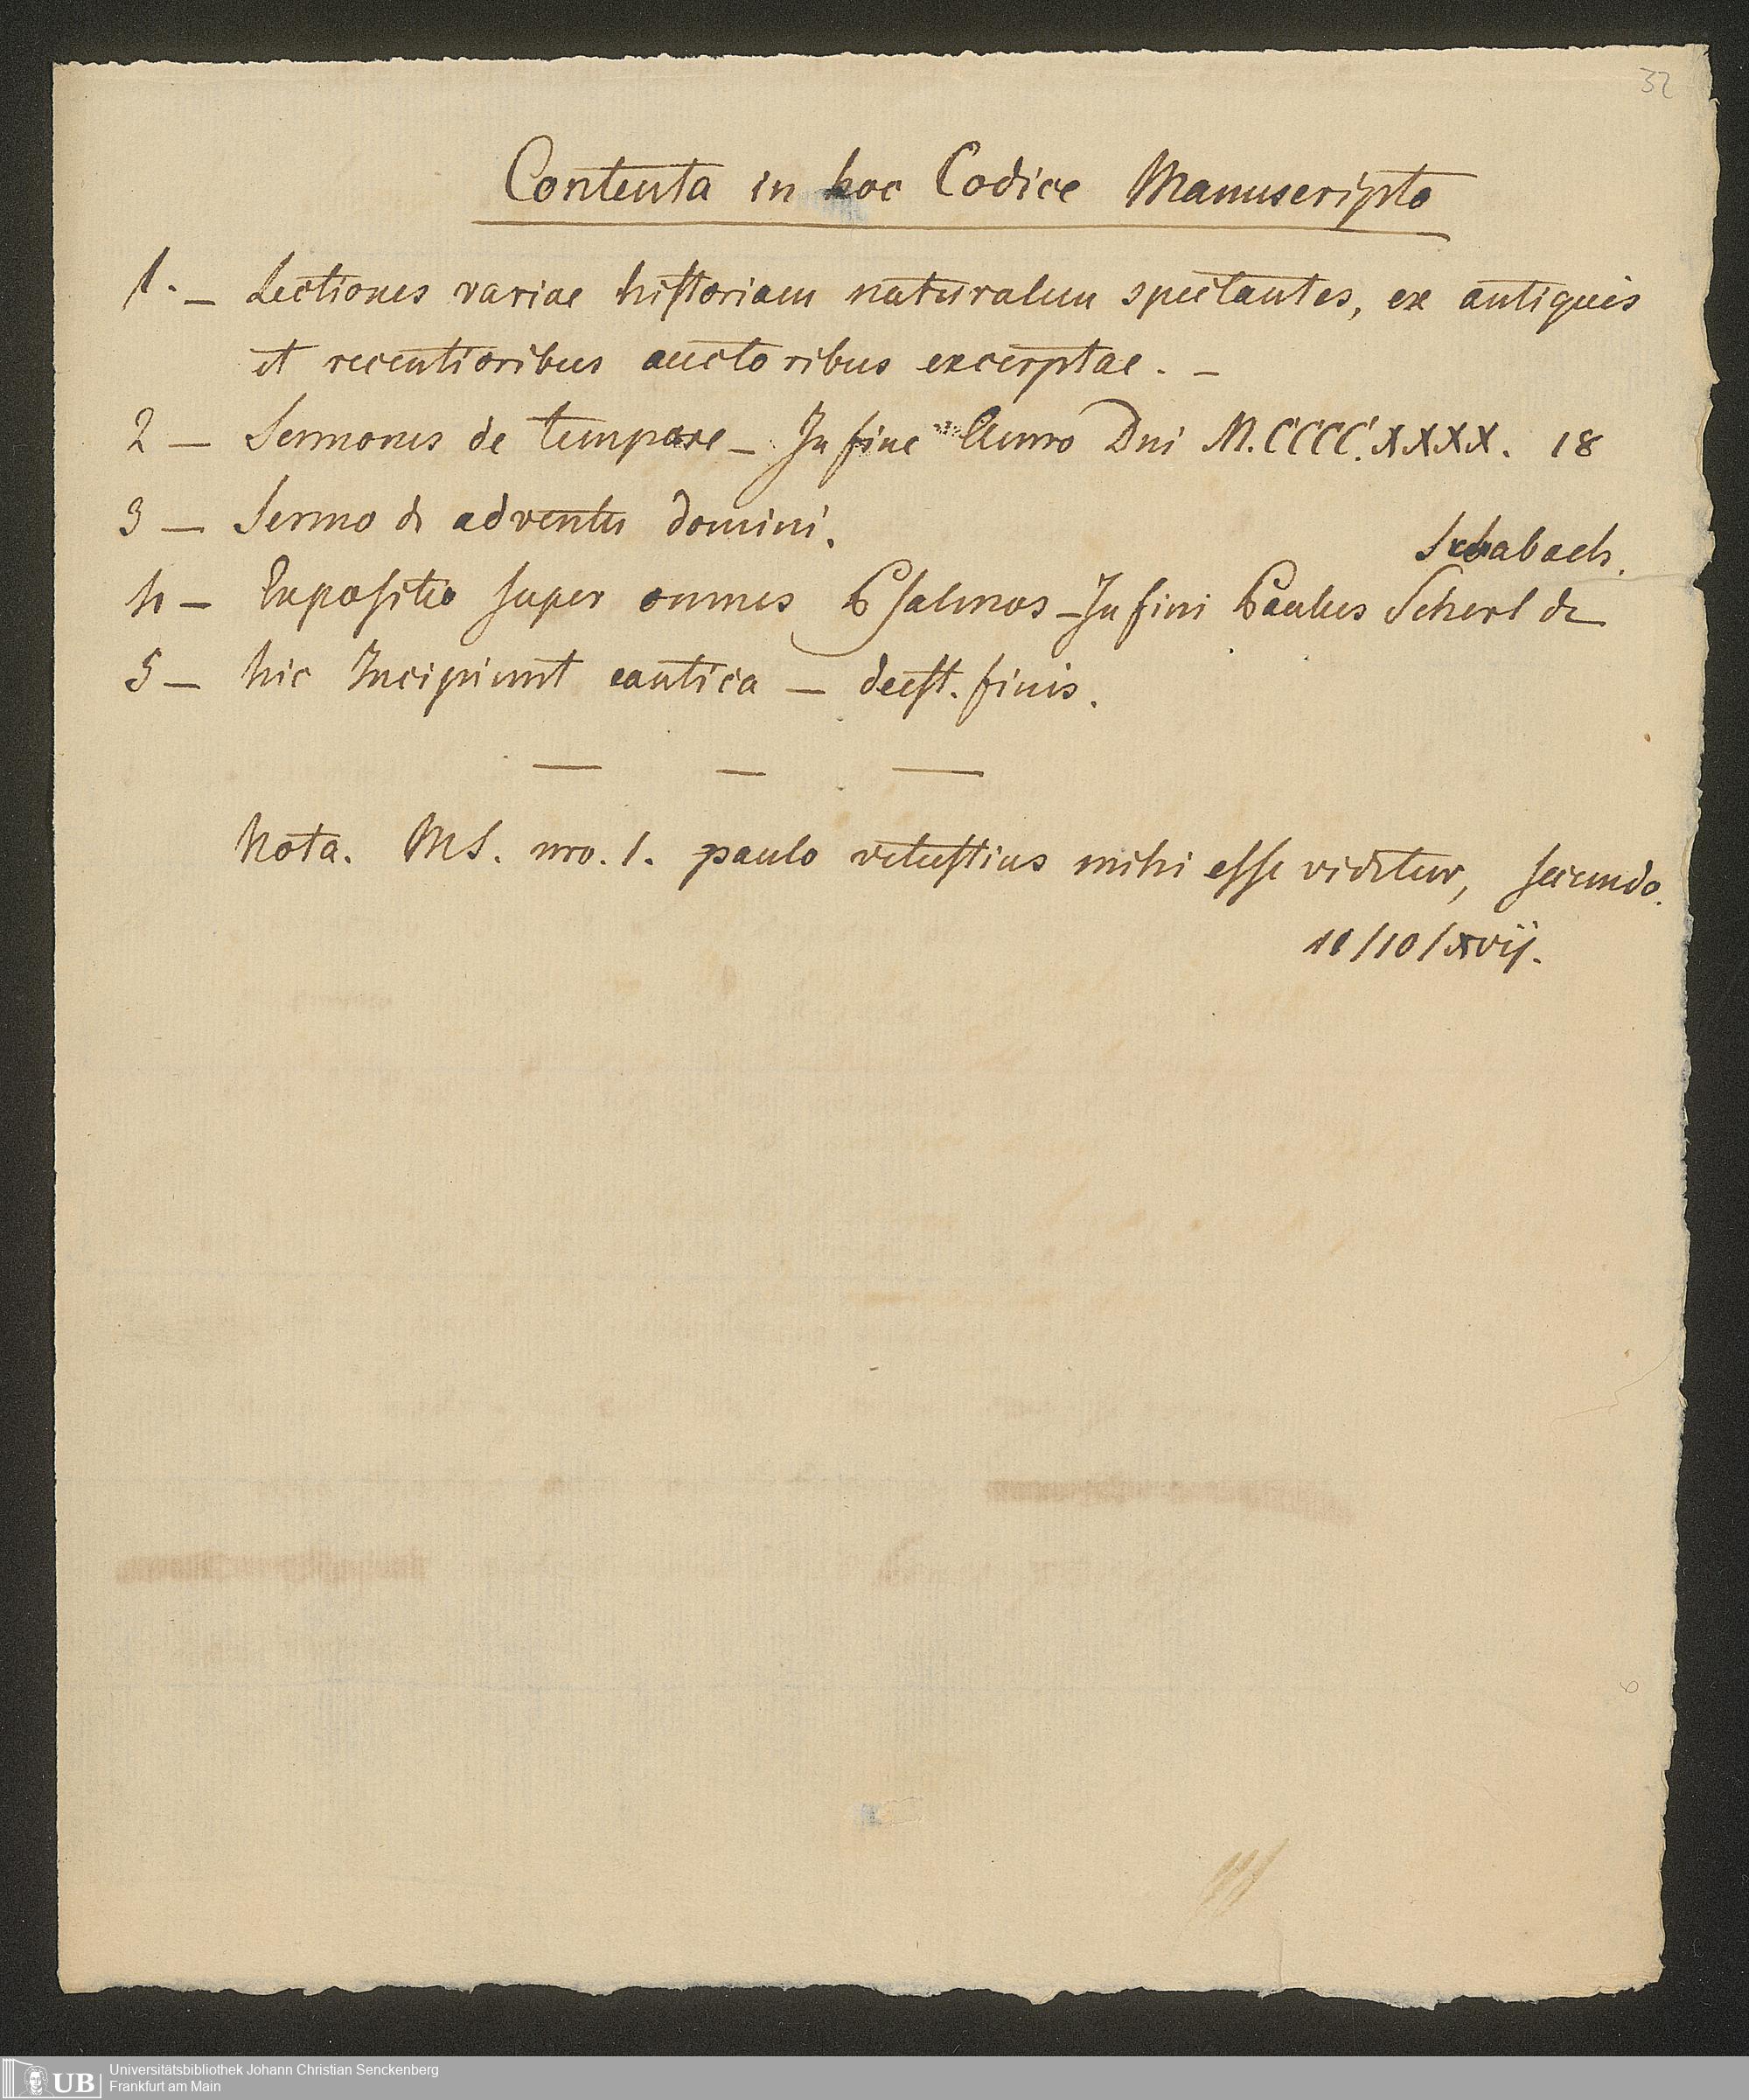 32
Contenta in hoc Codice Manuscripto
1. — Lectiones variae historiam naturalem spectantes, ex antiquis
et recentioribus auctoribus excerptae. —
2 — Sermones de tempore — In fine Anno Dni M.CCCC.XXXX. 18
3 — Sermo de adventu domini.
Schabach.
4 — Expositio super omnes Psalmos — In fini Paulus Scherl de
5 — hic Incipiunt cantica — deest. finis.
— — —
Nota. MS. nro. 1. paulo vetustius mihi esse videtur, secundo.
11/10/xvij.
6
UB Universitätsbibliothek Johann Christian Senckenberg
Frankfurt am Main